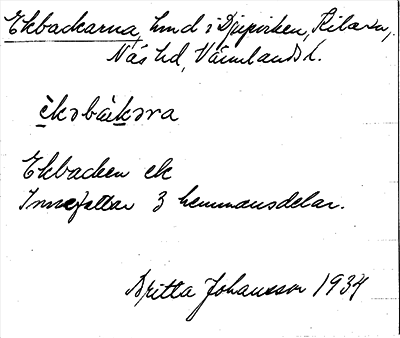 Ekbackarna, hmd i Djupviken, Kila sn,
Näs hd, Värmlands l.
èkəbàkəra
Ekbacken ek
Innefattar 3 hemmansdelar.
Britta Johansson 1934